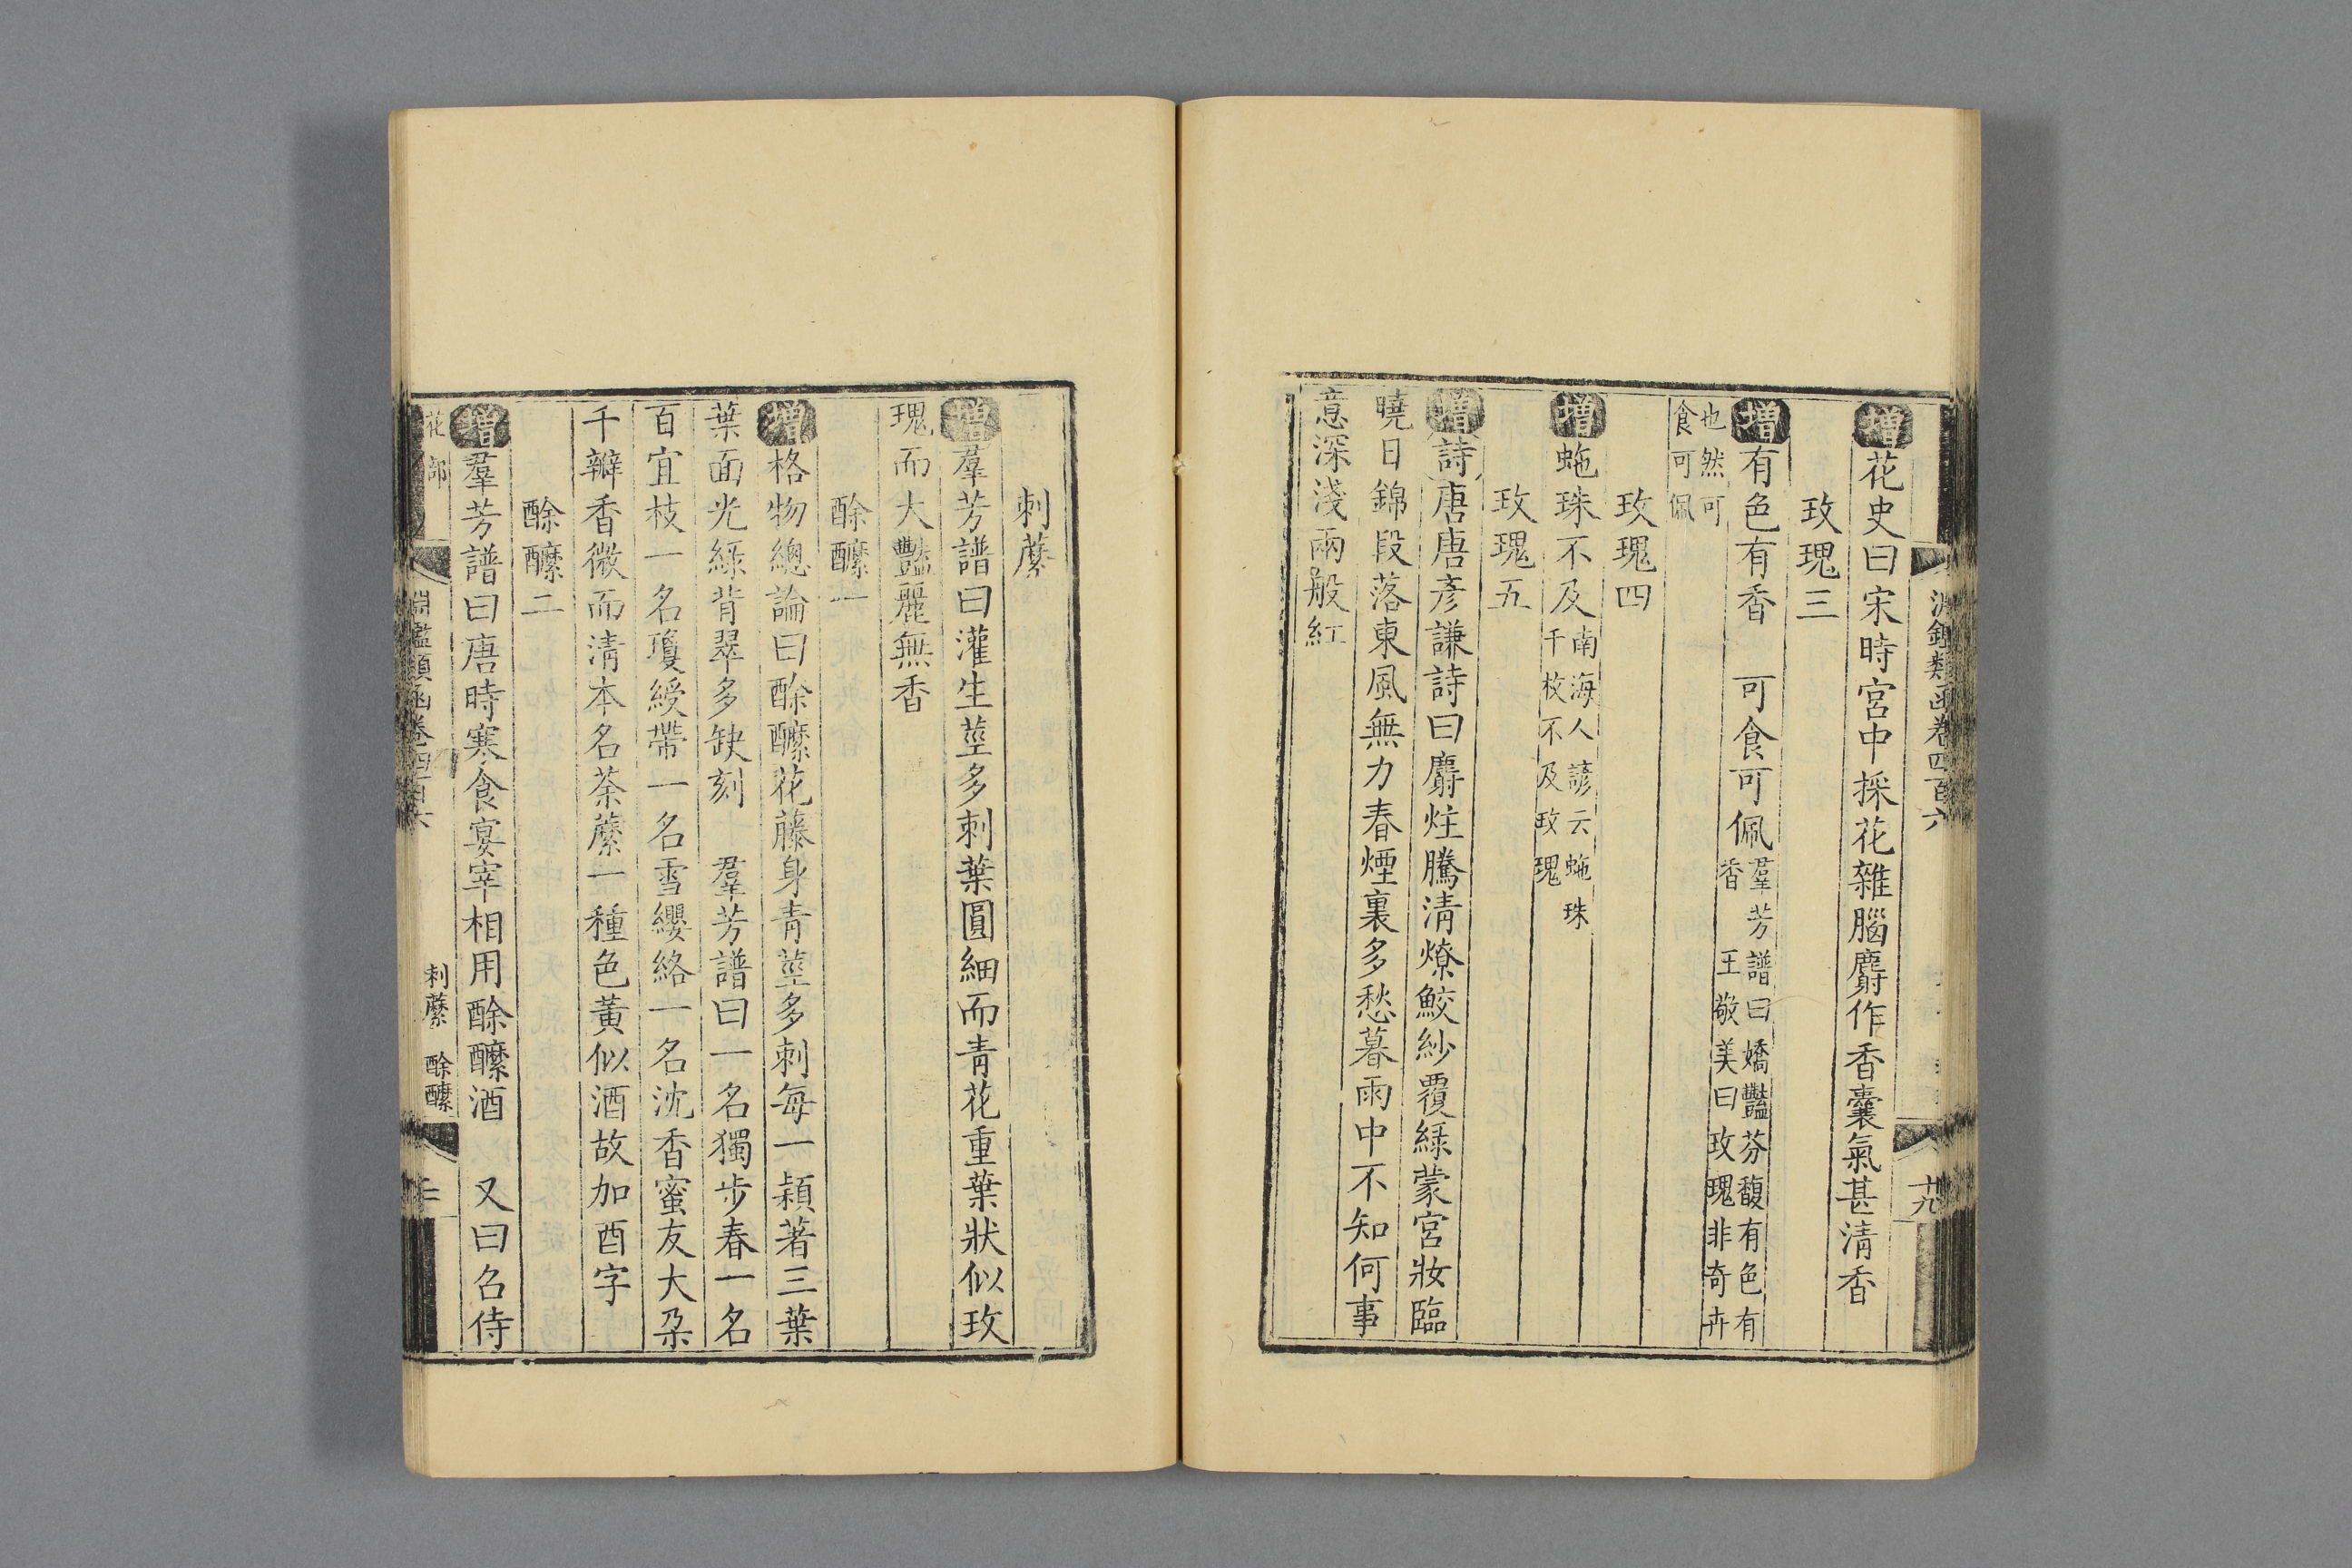 淵鑑類函卷四百六
十九
增花史曰宋時宮中採花雜腦麝作香囊氣甚清香
玫瑰三
增有色有香　可食可佩羣芳譜曰嬌豔芬馥有色有
香　王敬美曰玫瑰非奇卉
也然可
食可佩
玫瑰四
增蚖珠不及南海人諺云蚖珠
千枚不及玫瑰
玫瑰五
增詩唐唐彥謙詩曰麝炷騰清燎鮫紗覆綠蒙宮妝臨
曉日錦段落東風無力春煙裏多愁暮雨中不知何事
意深淺兩般紅
刺蘼
增羣芳譜曰灌生莖多刺葉圓細而青花重葉狀似玫
瑰而大豔麗無香
酴醾一
增格物總論曰酴醾花藤身青莖多刺每一穎著三葉
葉面光綠背翠多缺刻　羣芳譜曰一名獨步春一名
百宜枝一名瓊綬帶一名雪纓絡一名沈香蜜友大朶
千瓣香微而清本名荼蘼一種色黃似酒故加酉字
酴醾二
增羣芳譜曰唐時寒食宴宰相用酴醾酒　又曰名侍
花部
淵鑑類函卷四百六
刺蘼　酴醾